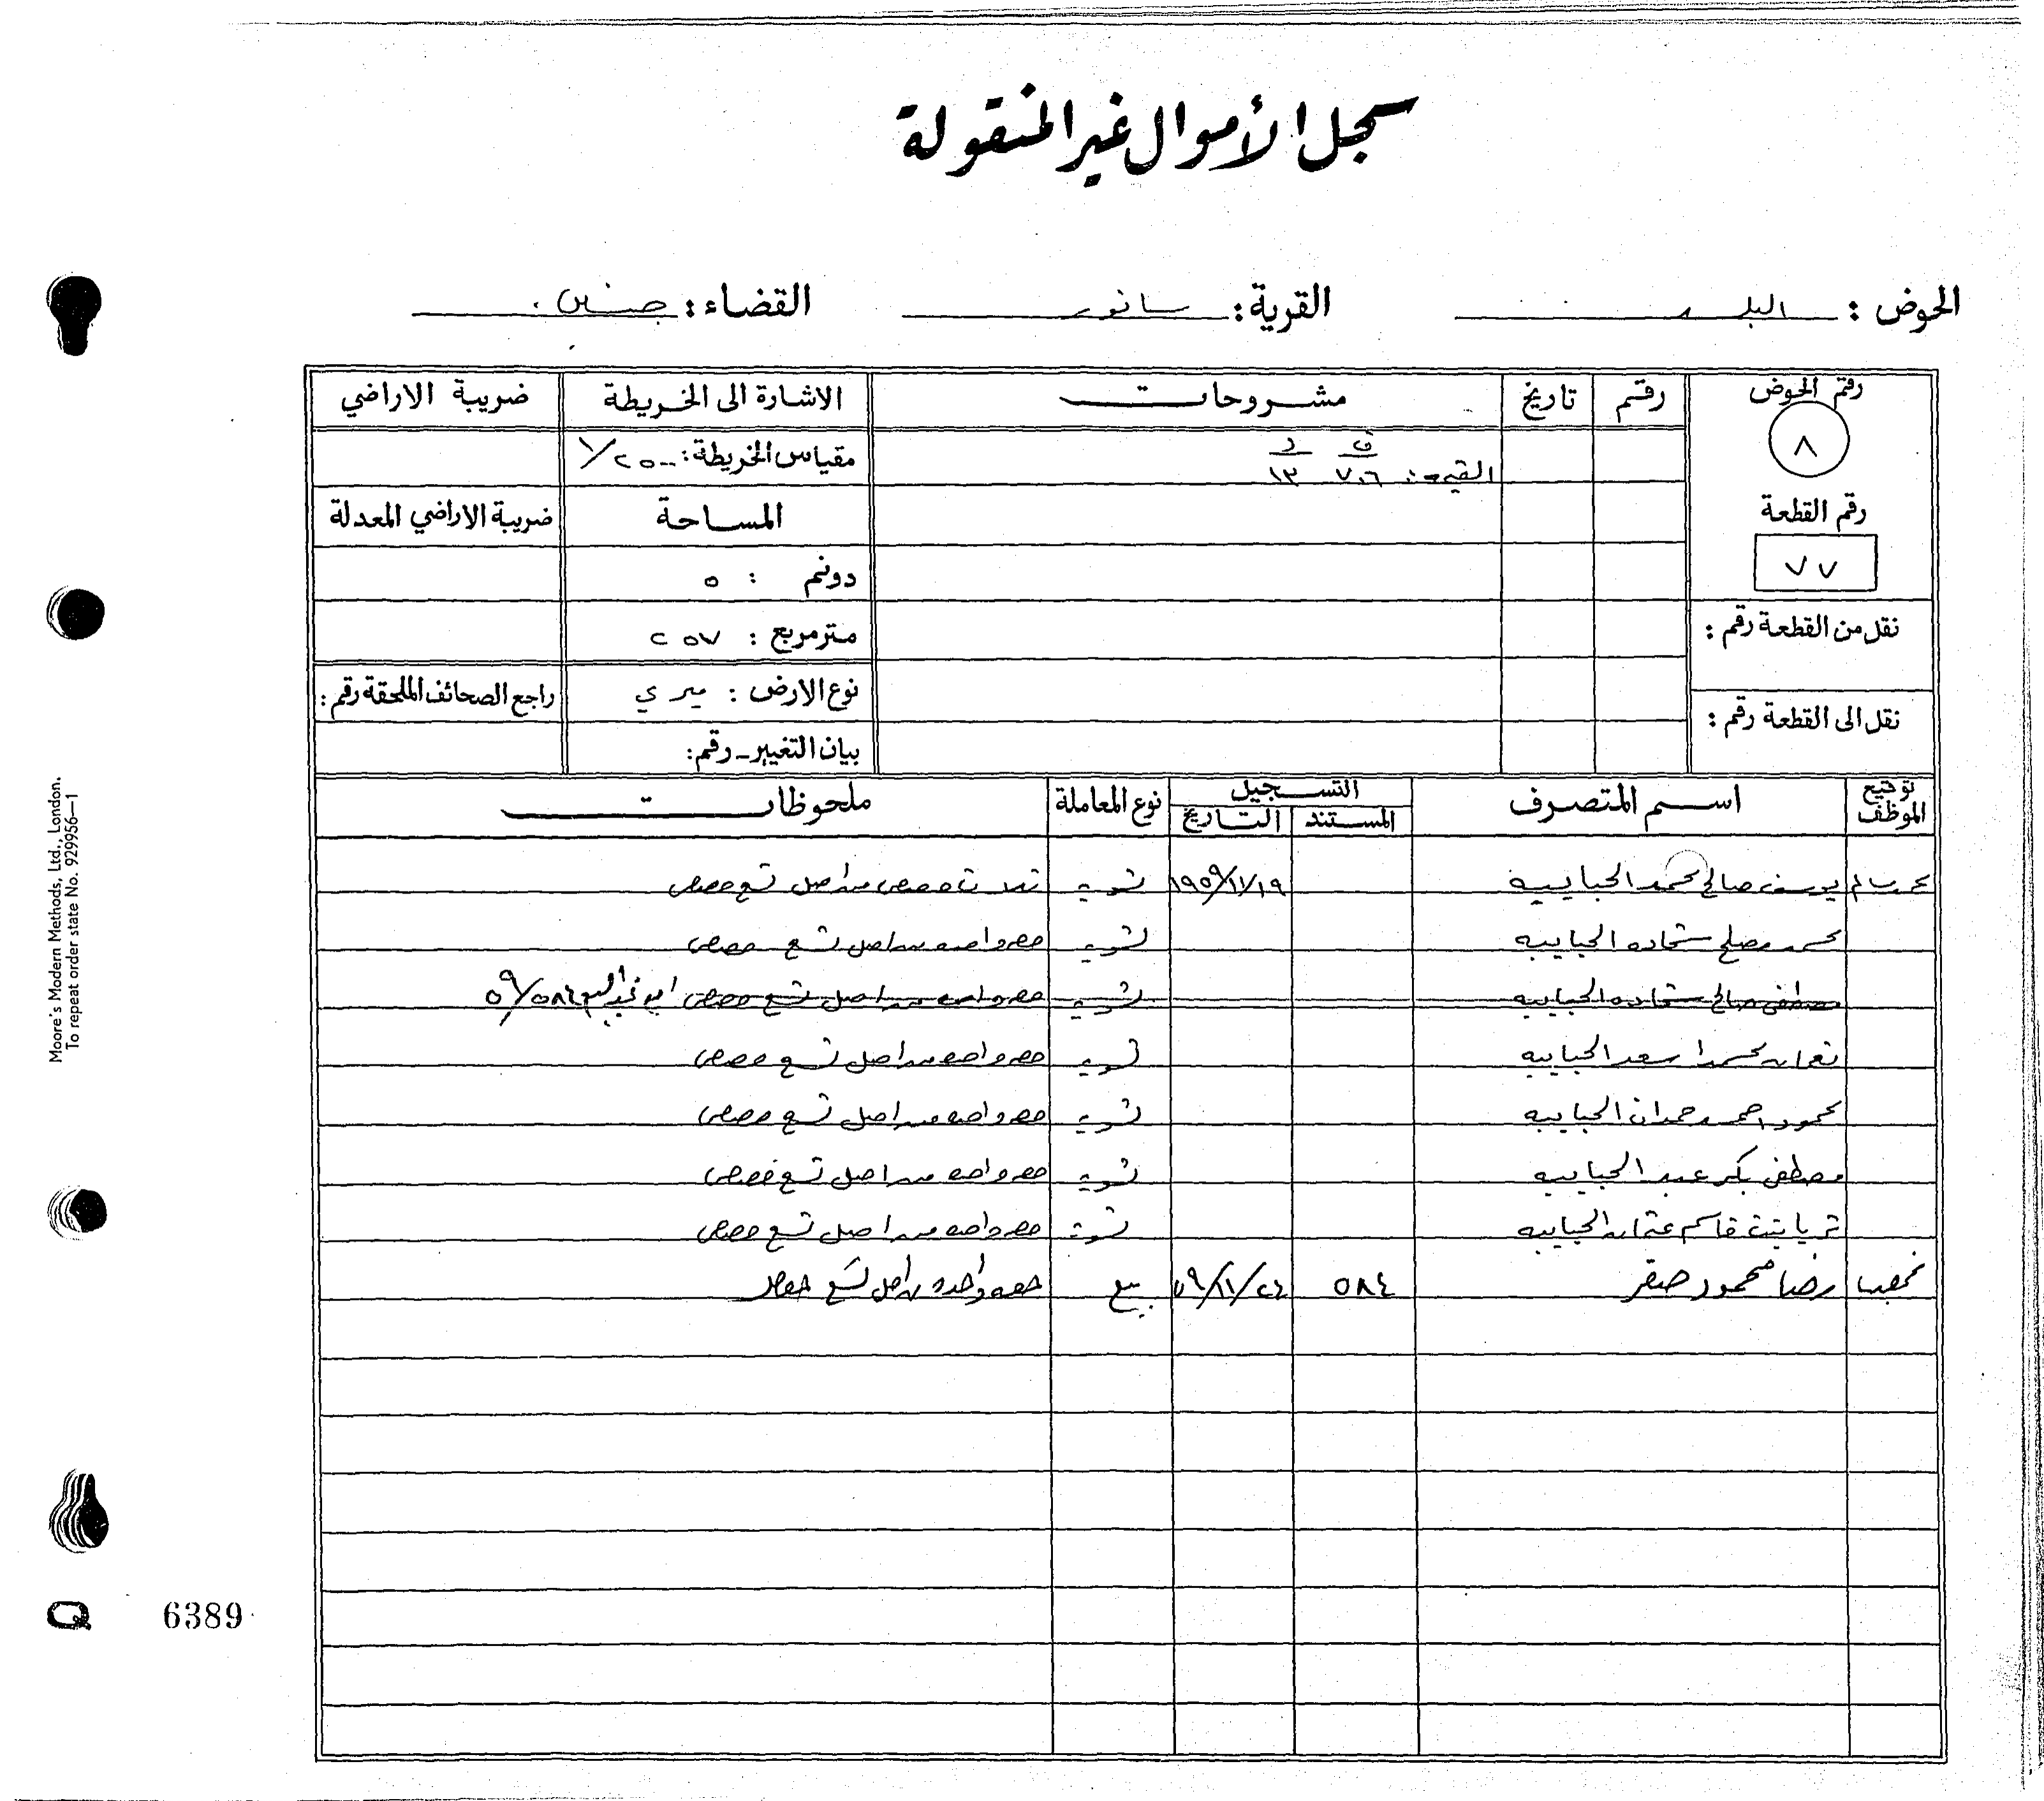 سجل الأموال غير المنقولة
الحوض : البلد القرية : سانور القضاء : جنين
رقم الحوض رقم تاريخ مشروحات الاشارة الى الخريطة ضريبة الاراضي
٨ القيمة : ف ٧٠٦ د ١٣ مقياس الخريطة : ١/٢٥٠٠
رقم القطعة المساحة ضريبة الاراضي المعدلة
٧٧ دونم : ٥
نقل من القطعة رقم : متر مربع : ٢٥٧
نوع الارض : ميري راجع الصحائف الملحقة رقم :
نقل الى القطعة رقم : بيان التغيير - رقم :
توقيع الموظف اسم المتصرف التسجيل نوع المعاملة ملحوظات
المستند التاريخ
يوسف صالح محمد الحبايبه ١٩٥٩/١١/١٩ تسويه ثلاث حصص من اصل تسع حصص
محمد مصلح شحاده الحبايبه تسويه حصه واحده من اصل تسع حصص
مصطفى صالح شحاده الحبايبه تسويه حصه واحده من اصل تسع حصص ٥٩/٥٨٤
نعمان محمد اسعد الحبايبه تسويه حصه واحده من اصل تسع حصص
محمود احمد حمدان الحبايبه تسويه حصه واحده من اصل تسع حصص
مصطفى بكر عبد الحبايبه تسويه حصه واحده من اصل تسع حصص
ثريا بنت قاسم عثمان الحبايبه تسويه حصه واحده من اصل تسع حصص
رضا محمود صقر ٥٨٤ ٥٩/١١/٢٤ بيع حصه واحده من اصل تسع حصص
Moore's Modern Methods, Ltd., London.
To repeat order state No. 929956—1
Q 6389